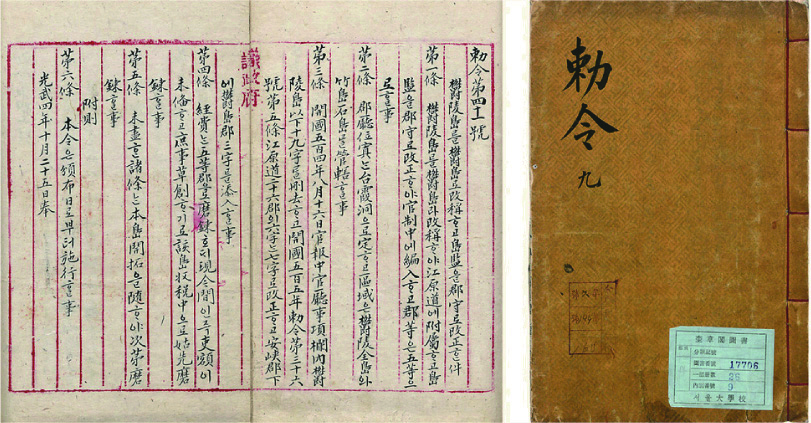 勅令第四十一號
鬱陵島를鬱島로改稱ᄒᆞ고島監을郡守로改正ᄒᆞᆫ件
第一條 鬱陵島를鬱島라改稱ᄒᆞ야江原道에附屬ᄒᆞ고島
監을郡守로改正ᄒᆞ야官制中에編入ᄒᆞ고郡等은五等으
로ᄒᆞᆯ事
第二條 郡廳位寘는台霞洞으로定ᄒᆞ고區域은鬱陵全島와
竹島石島를管轄ᄒᆞᆯ事
第三條 開國五百四年八月十六日官報中官廳事項欄內鬱
陵島以下十九字를刪去ᄒᆞ고開國五百五年勅令第三十六
號第五條江原道二十六郡의六字는七字로改正ᄒᆞ고安峽郡下
議政府
에鬱島郡三字를添入ᄒᆞᆯ事
第四條 經費는五等郡으로磨鍊호되現今間인즉吏額이
未備ᄒᆞ고庶事草創ᄒᆞ기로該島收稅中으로姑先磨
鍊ᄒᆞᆯ事
第五條 未盡ᄒᆞᆫ諸條는本島開拓을隨ᄒᆞ야次第磨
鍊ᄒᆞᆯ事
附則
第六條 本令은頒布日로부터施行ᄒᆞᆯ事
光武四年十月二十五日奉
勅令 九
奎章閣圖書
圖書番號 17706
28
9
서울大學校